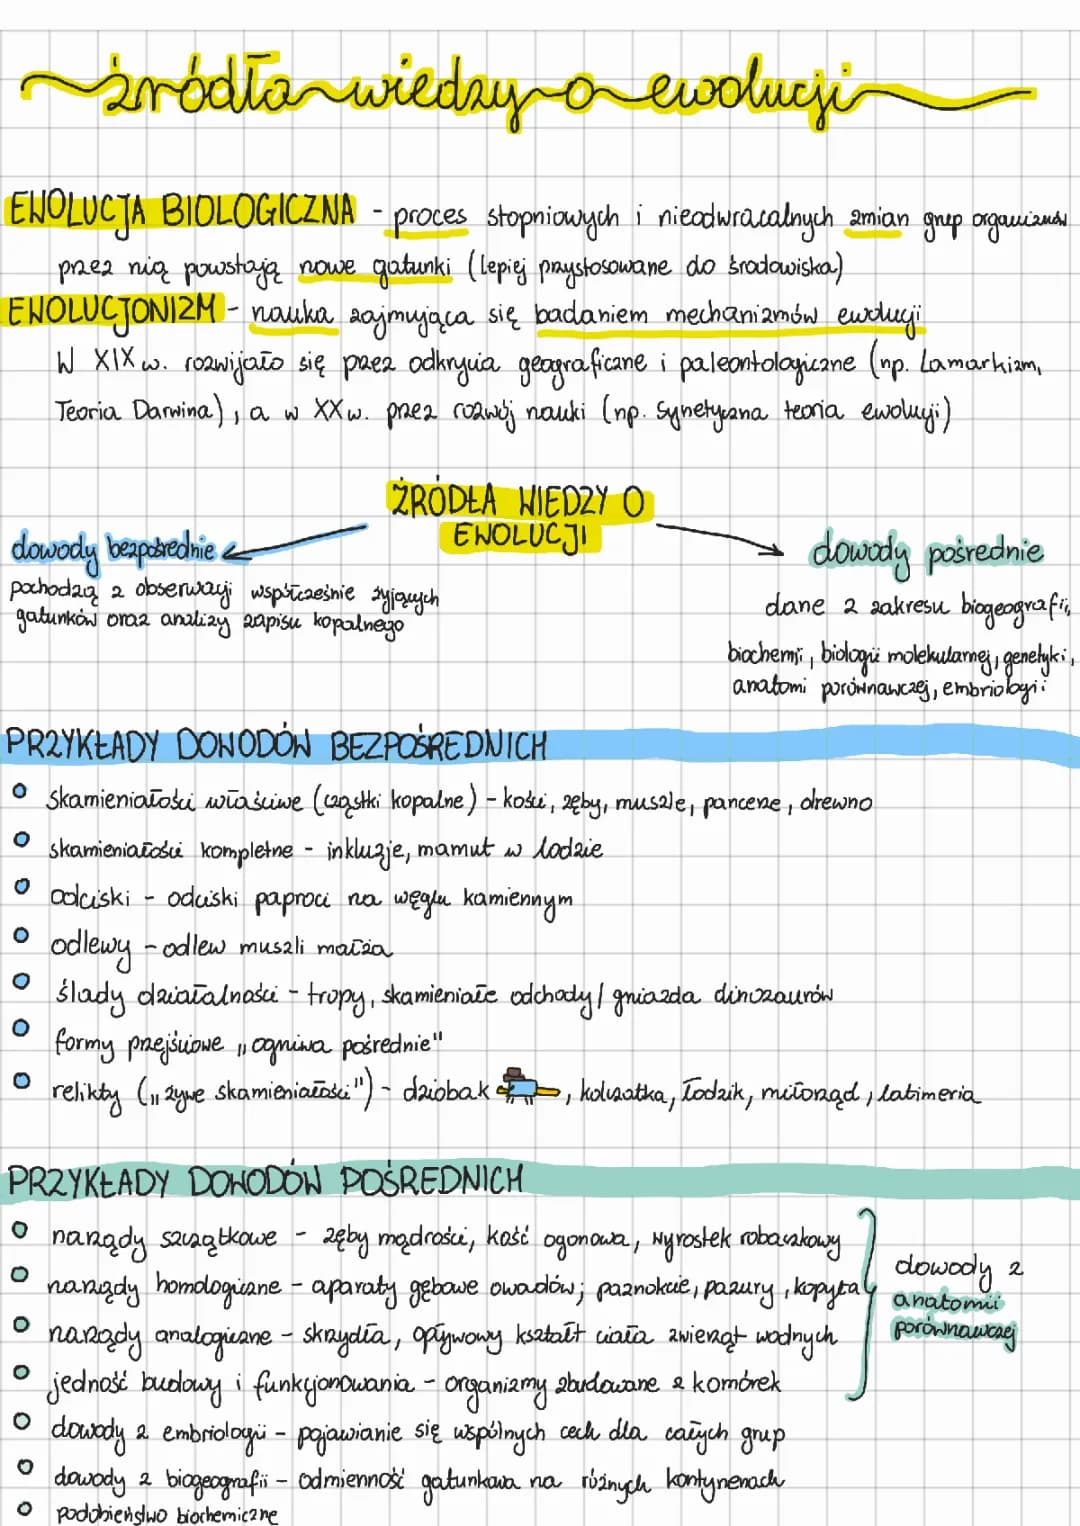 źródła wiedzy o ewolucji
EWOLUCJA BIOLOGICZNA - proces stopniowych i nieodwracalnych zmian grup organizmów
przez nią powstają nowe gatunki (lepiej przystosowane do środowiska)
EWOLUCJONIZM - nauka zajmująca się badaniem mechanizmów ewolucji
W XIX w. rozwijało się przez odkrycia geograficzne i paleontologiczne (np. Lamarkizm,
Teoria Darwina), a w XX w. przez rozwój nauki (np. Synetyczna teoria ewolucji)
ŹRÓDŁA WIEDZY O
EWOLUCJI
dowody bezpośrednie
pochodzą z obserwacji współcześnie żyjących
gatunków oraz analizy zapisu kopalnego
dowody pośrednie
dane z zakresu biogeografii,
biochemii, biologii molekularnej, genetyki,
anatomi porównawczej, embriologii
PRZYKŁADY DOWODÓW BEZPOŚREDNICH
skamieniałości właściwe (cząstki kopalne) - kości, zęby, muszle, pancerze, drewno
skamieniałości kompletne - inkluzje, mamut w lodzie
odciski - odciski paproci na węglu kamiennym
odlewy - odlew muszli małża
ślady działalności - tropy, skamieniałe odchody/ gniazda dinozaurów
formy przejściowe „ogniwa pośrednie"
relikty („żywe skamieniałości") - dziobak, kolczatka, łodzik, miłorząd, latimeria
PRZYKŁADY DOWODÓW POŚREDNICH
narządy szczątkowe - zęby mądrości, kość ogonowa, wyrostek robaczkowy
narządy homologiczne - aparaty gębowe owadów; paznokcie, pazury, kopyta
narządy analogiczne - skrzydła, opływowy kształt ciała zwierząt wodnych
jedność budowy i funkcjonowania - organizmy zbudowane z komórek
dowody z
anatomii
porównawczej
dowody z embriologii - pojawianie się wspólnych cech dla całych grup
dowody z biogeografii - odmienność gatunkowa na różnych kontynenach
podobieństwo biochemiczne